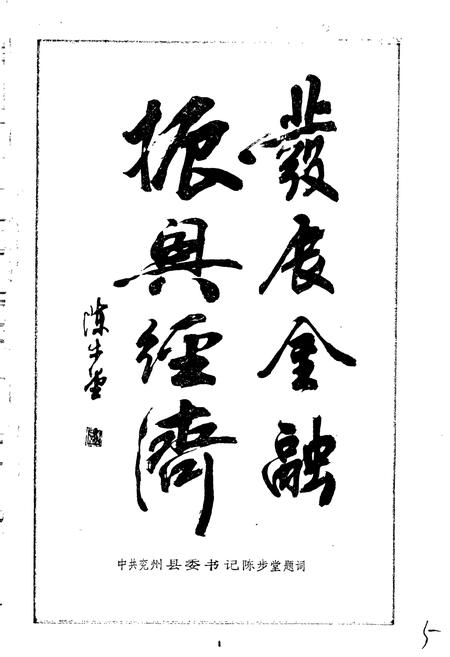 發展金融
振興經濟
陈步堂
中共兖州县委书记陈步堂题词
1
5